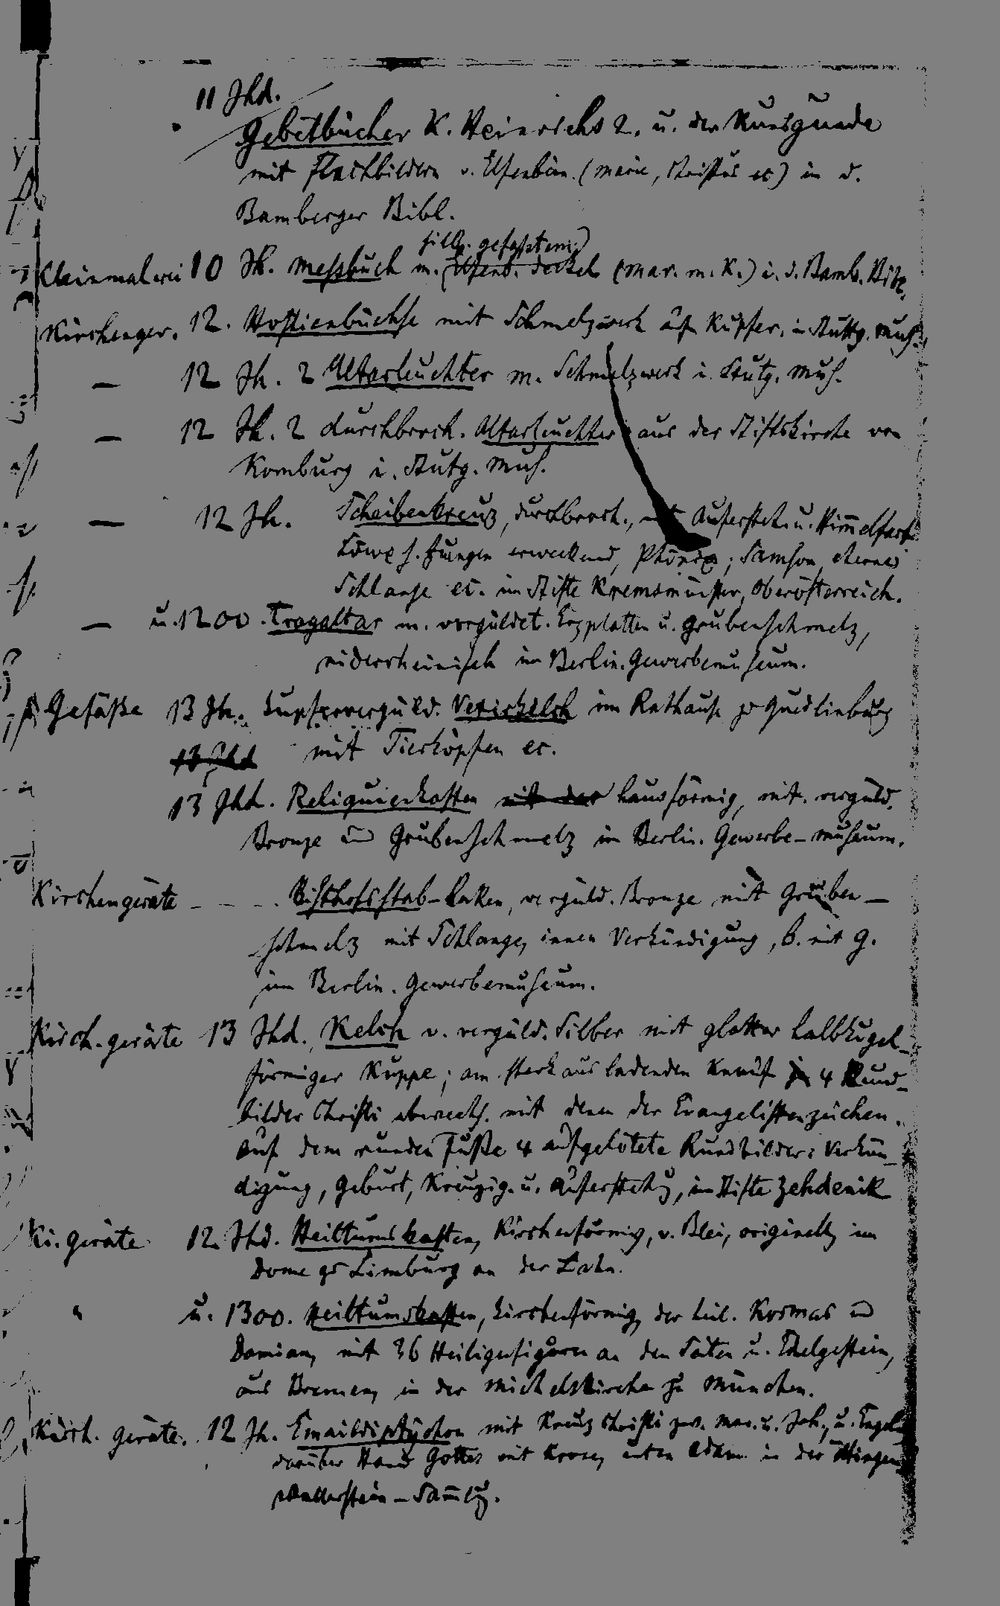 11 Jhd.
Gebetbücher K. Heinrichs 2. u. der Kunigunde
mit Flachbildern v. Elfenbein. (Marie, Christus ec) in d.
Bamberger Bibl.
silb. gefasstem
Kleinmalerei 10 Jh. Messbuch m. (Elfenb. deckel (Mar. m. K.) i. d. Bamb. Bibl.
Kirchenger. 12. Hostienbüchse mit Schmelzwerk auf Kupfer, i. Stuttg. Mus.
— 12 Jh. 2 Altarleuchter m. Schmelzwerk i. Stutg. Mus.
— 12 Jh. 2 durchbroch. Altarleuchter aus der Stiftskirche von
Komburg i. Stutg. Mus.
— 12 Jh. Scheibenkreuz, durchbroch., mit Aufersteh. u. Himmelfart
Löwe s. Jungen erweckend, Phönix; Samson, eherne
Schlange ec. im Stifte Kremsmünster, Oberösterreich.
— u. 1200. Tragaltar m. vergüldet. Erzplatten u. Grubenschmelz,
niderrheinisch im Berlin. Gewerbemuseum.
Gefäße 13 Jh. kupferverguld. Kelch im Rathause zu Quedlinburg
13 Jhd mit Tierköpfen ec.
13 Jhd. Reliquienkasten mit der hausförmig, mit verguld.
Bronze und Grubenschmelz im Berlin. Gewerbe-Museum.
Kirchengeräte - - - . Bischofsstab-Haken, verguld. Bronze mit Gruben-
schmelz mit Schlange, innen Verkündigung, b. mit g.
im Berlin. Gewerbemuseum.
Kirch. geräte 13 Jhd. Kelch v. verguld. Silber mit glatter halbkugel-
förmiger Kuppe; am stark ausladenden Knauf in 4 Rund-
bilder Christi abwechs. mit denen der Evangelistenzeichen.
Auf dem runden Fuße 4 aufgelötete Rundbilder: Verkün-
digung, Geburt, Kreuzig. u. Auferstehg, im Stifte Zehdenik
Ki. geräte 12. Jhd. Heiltumskasten, Kirchenförmig, v. Blei, originell, im
Dome zu Limburg an der Lahn.
" u. 1300. Heiltumskasten, kirchenförmig, der heil. Kosmas und
Damian, mit 36 Heiligenfiguren an den Seiten u. Edelgestein,
aus Bremen, in der Michelskirche zu München.
Kirch. geräte. 12 Jh. Emaildiptychon mit Kreuz Christi zw. Mar. u. Joh., u. Engeln
darüber Hand Gottes mit Krone, unten Adam in der Öttingen
Wallerstein-Samlg.